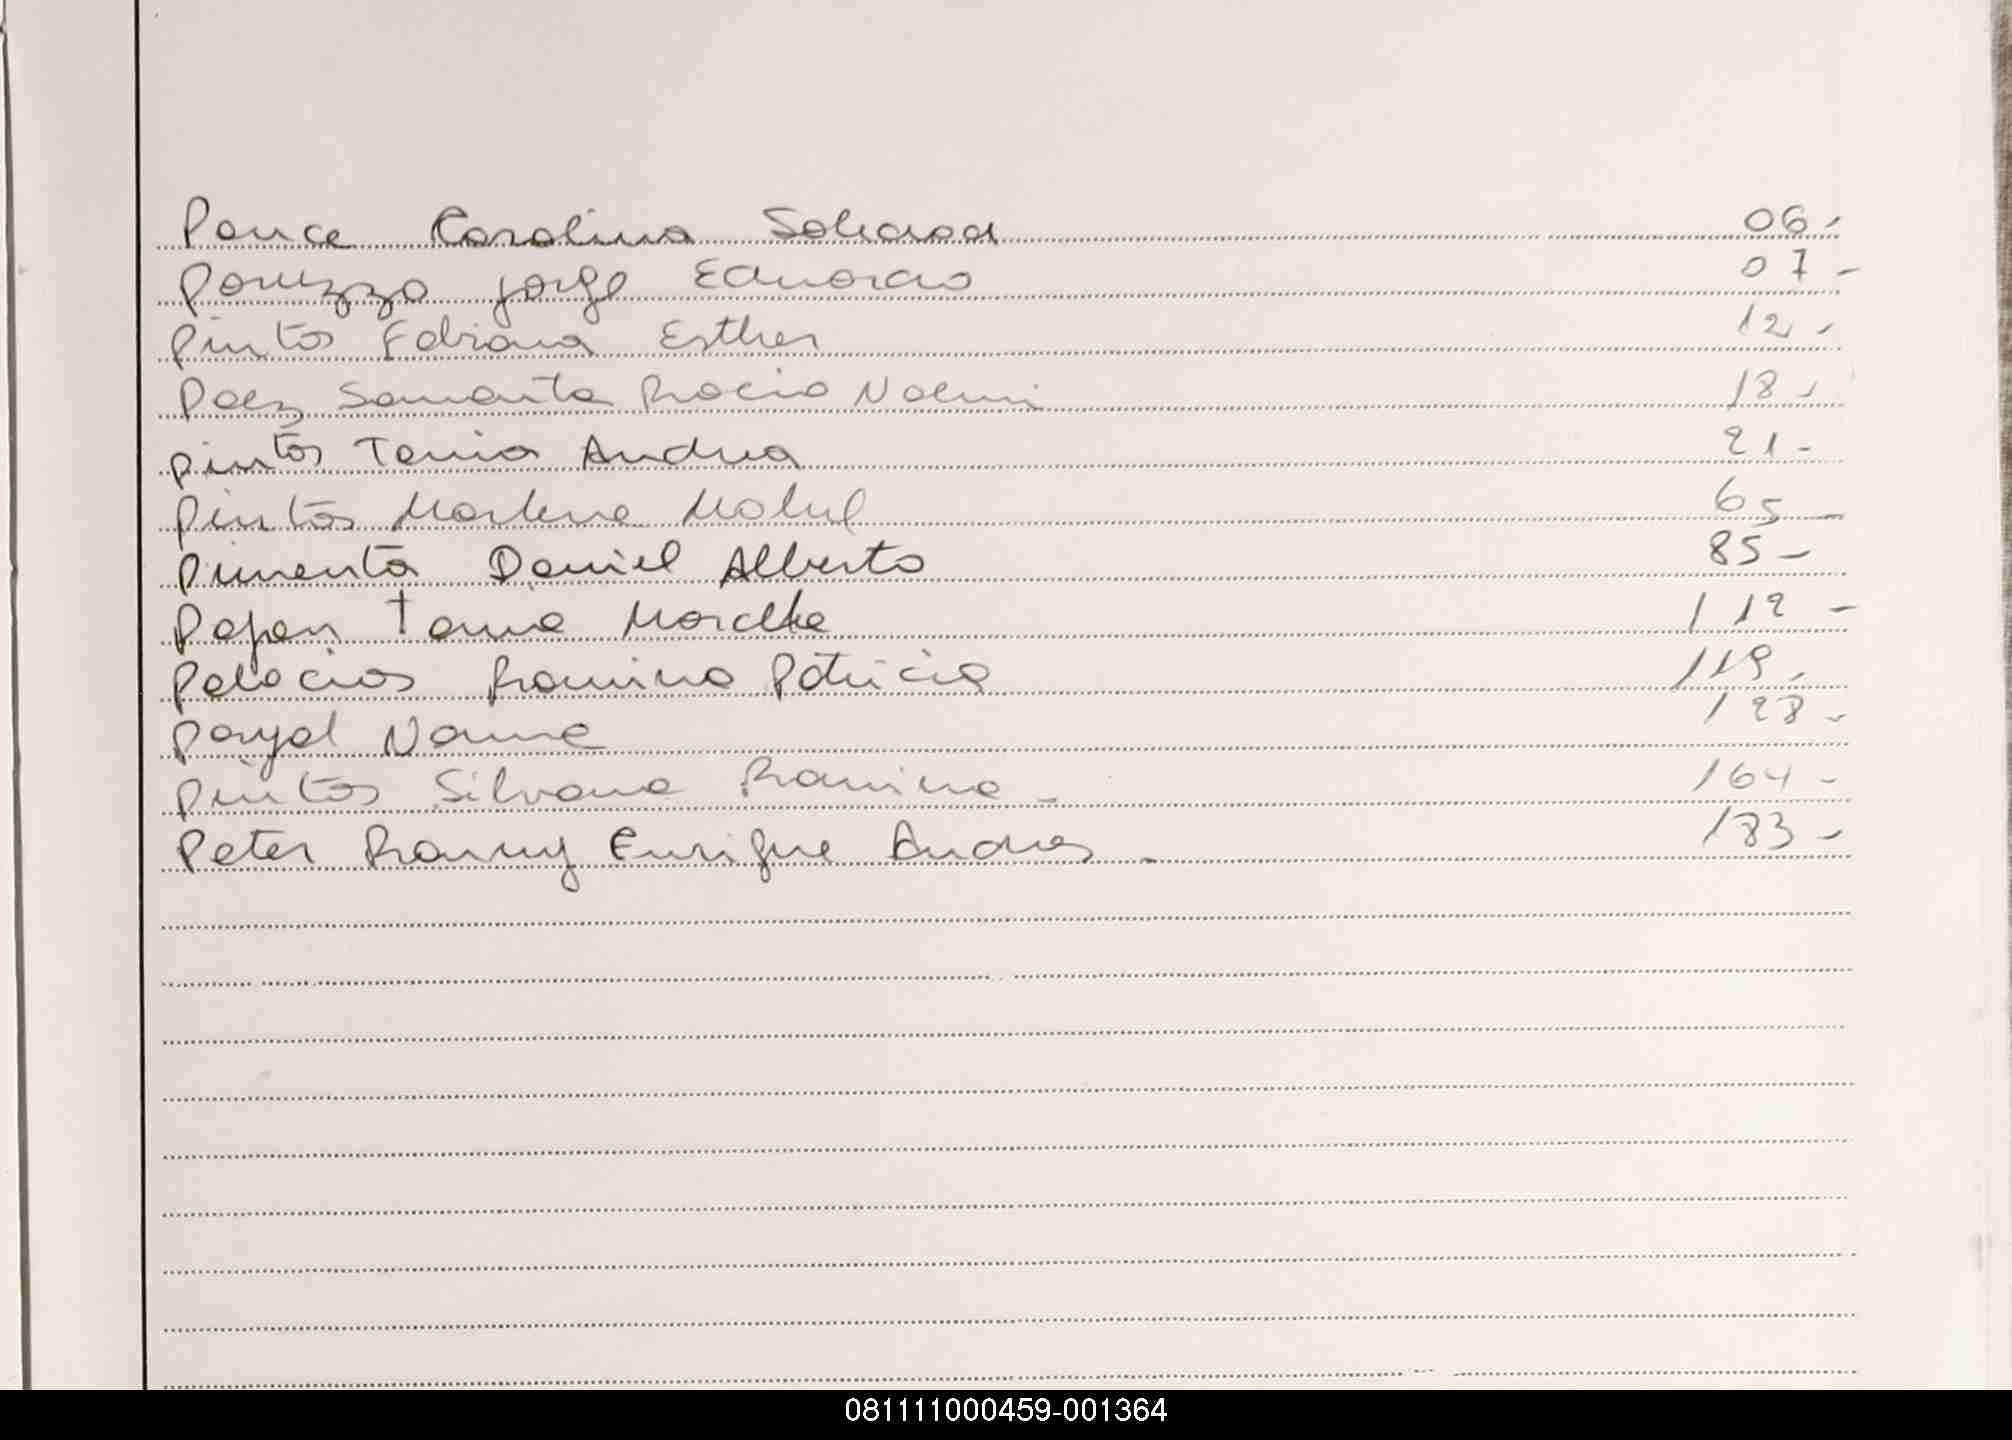 Ponce Carolina Soledad 06-
Poruzzo Jorge Eduardo 07-
Pintos Fabiana Esther 12-
Paez Samanta Rocio Noemi 18-
Pintos Tania Andrea 21-
Pintos Marlene Mabel 65-
Pimenta Daniel Alberto 85-
Tania Marcelle 112-
Palacios Romina Patricia 119-
128-
Pintos Silvana Romina - 164-
Peter Ronny Enrique Andres - 183-
081111000459-001364